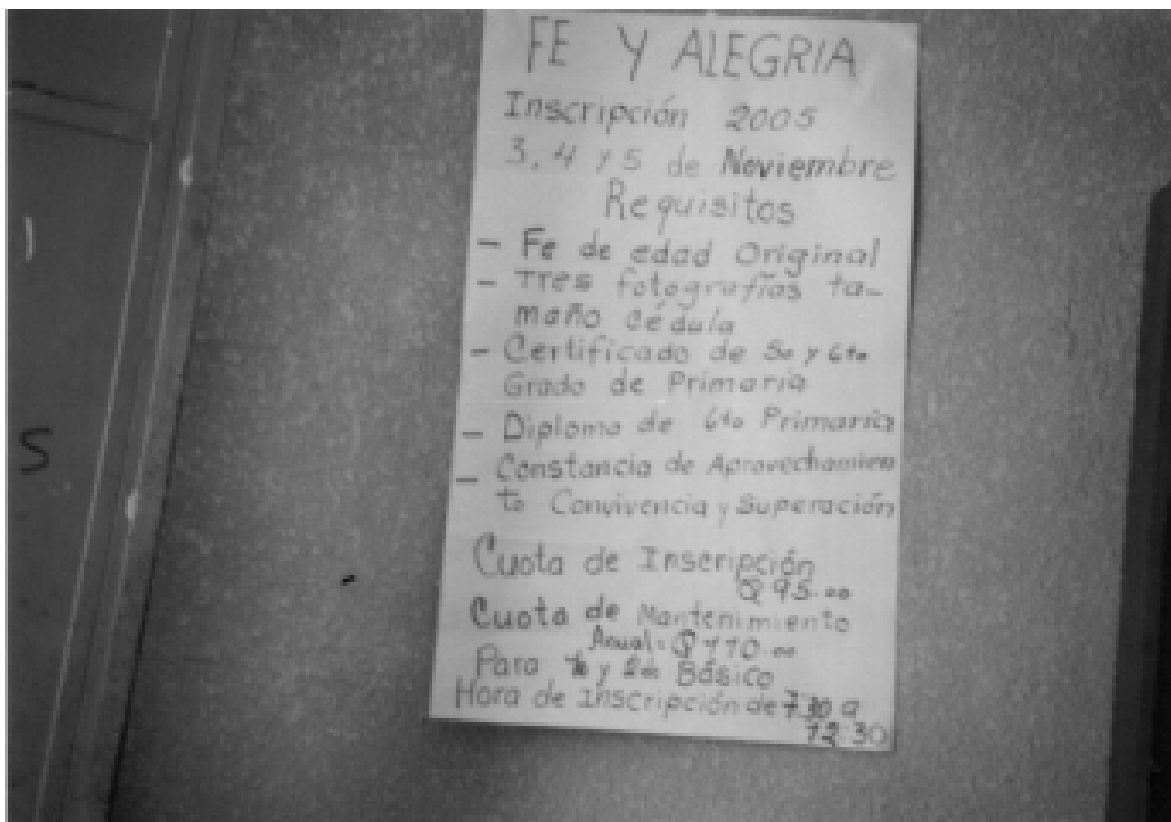 FE Y ALEGRIA
Inscripción 2005
3, 4 y 5 de Noviembre
Requisitos
- Fe de edad Original
- Tres fotografías ta-
maño cédula
- Certificado de 5o y 6to
Grado de Primaria
- Diploma de 6to Primaria
- Constancia de Aprovechamien
to Convivencia y Superación
Cuota de Inscripción
Q 95.00
Cuota de Mantenimiento
Anual = Q 110.00
Para 1o y 2do Básico
Hora de Inscripción de 7:30 a
12:30
S